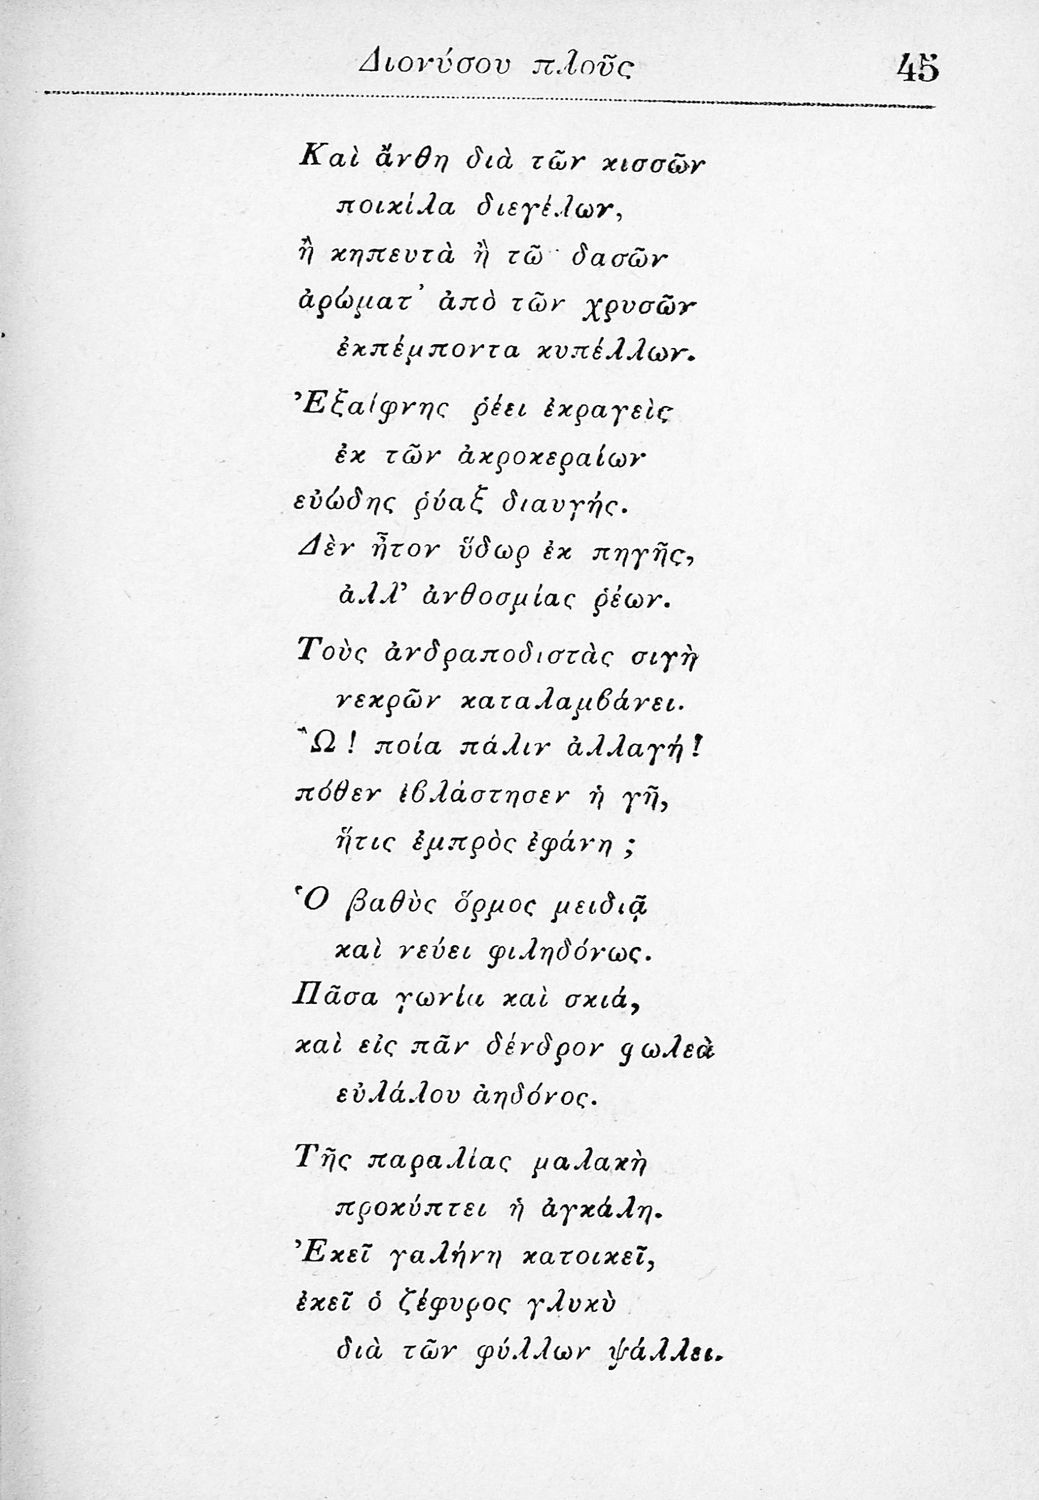 Διονύσου πλοῦς 45
Καὶ ἄνθη διὰ τῶν κισσῶν
ποικίλα διεγέλων,
ἢ κηπευτὰ ἢ τῶ δασῶν
ἀρώματ᾽ ἀπὸ τῶν χρυσῶν
ἐκπέμποντα κυπέλλων.
Ἐξαίφνης ῥέει ἐκραγεὶς
ἐκ τῶν ἀκροκεραίων
εὐώδης ῥύαξ διαυγής.
Δὲν ἦτον ὕδωρ ἐκ πηγῆς,
ἀλλ᾽ ἀνθοσμίας ῥέων.
Τοὺς ἀνδραποδιστὰς σιγὴ
νεκρῶν καταλαμβάνει.
Ὢ! ποία πάλιν ἀλλαγή!
πόθεν ἐβλάστησεν ἡ γῆ,
ἥτις ἐμπρὸς ἐφάνη ;
Ὁ βαθὺς ὅρμος μειδιᾷ
καὶ νεύει φιληδόνως.
Πᾶσα γωνία καὶ σκιά,
καὶ εἰς πᾶν δένδρον φωλεὰ
εὐλάλου ἀηδόνος.
Τῆς παραλίας μαλακὴ
προκύπτει ἡ ἀγκάλη.
Ἐκεῖ γαλήνη κατοικεῖ,
ἐκεῖ ὁ ζέφυρος γλυκὺ
διὰ τῶν φύλλων ψάλλει.